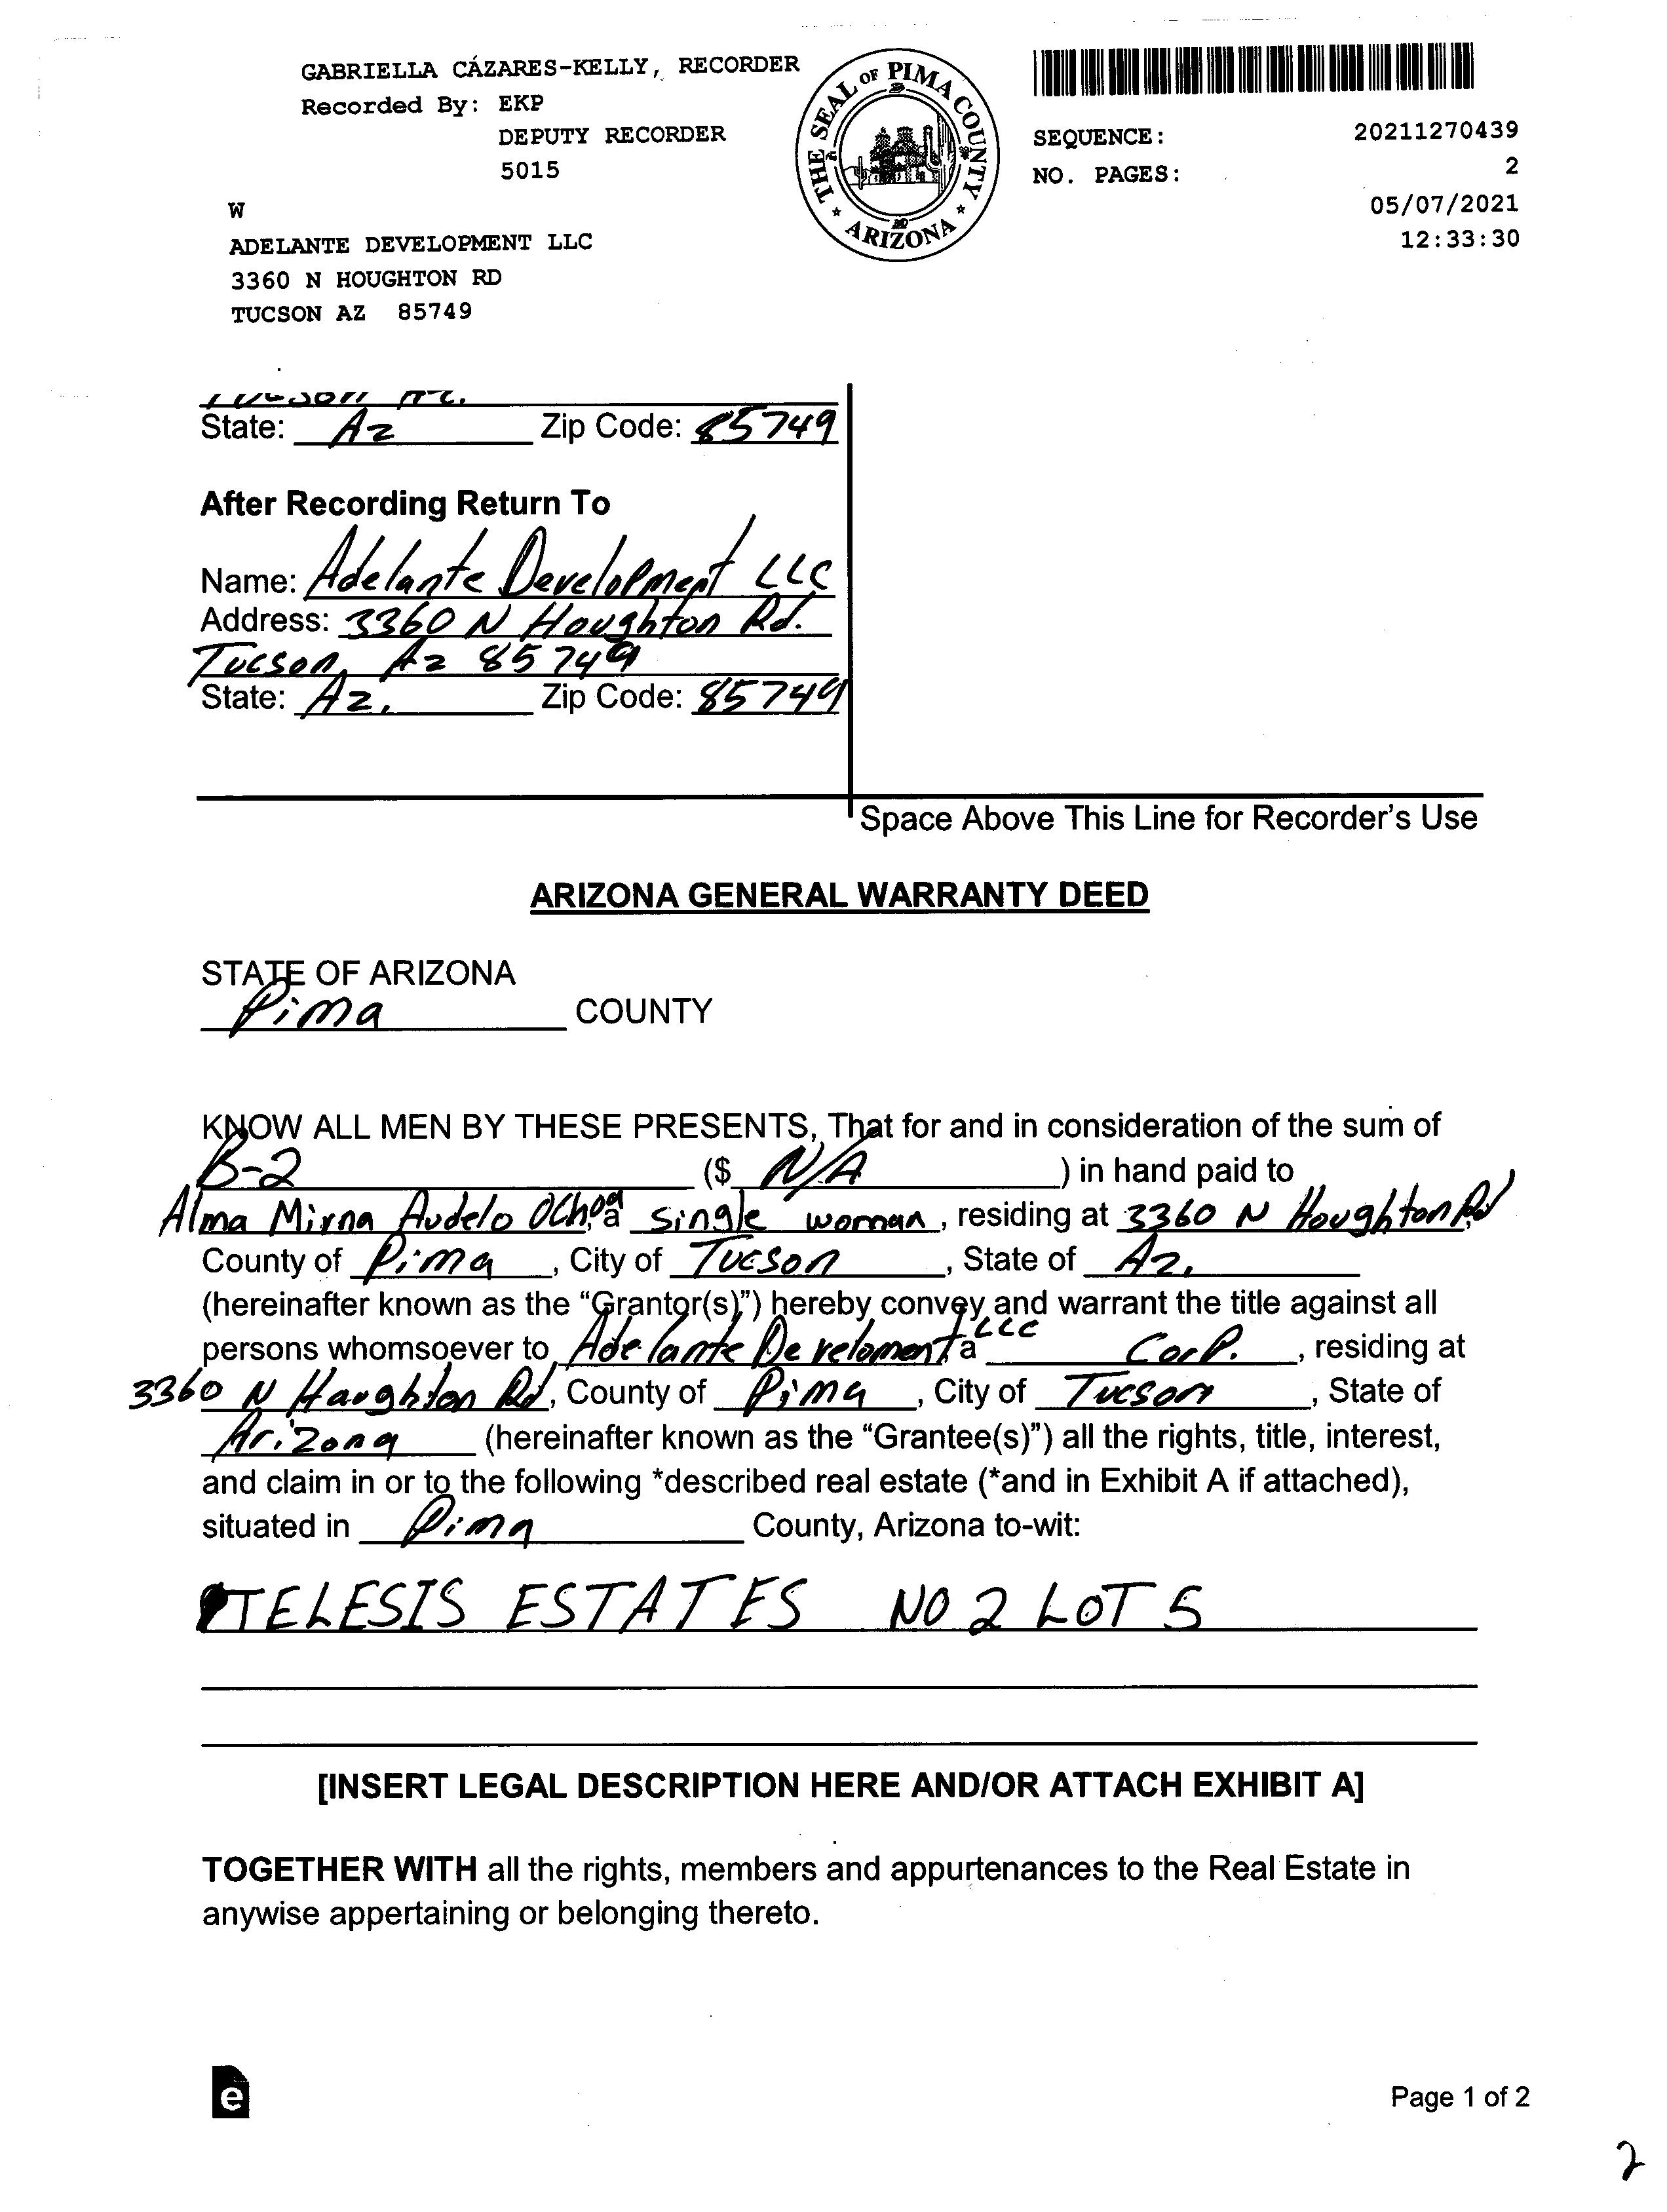 GABRIELLA CÁZARES-KELLY, RECORDER
Recorded By: EKP
DEPUTY RECORDER
5015
THE SEAL OF PIMA COUNTY
ARIZONA
SEQUENCE: 20211270439
NO. PAGES: 2
05/07/2021
12:33:30
W
ADELANTE DEVELOPMENT LLC
3360 N HOUGHTON RD
TUCSON AZ 85749
State: Az Zip Code: 85749
After Recording Return To
Name: Adelante Development LLC
Address: 3360 N Houghton Rd.
Tucson, Az 85749
State: Az. Zip Code: 85749
Space Above This Line for Recorder's Use
ARIZONA GENERAL WARRANTY DEED
STATE OF ARIZONA
Pima COUNTY
KNOW ALL MEN BY THESE PRESENTS, That for and in consideration of the sum of
B-2 ($ N/A ) in hand paid to
Alma Mirna Audelo Ochoa, a single woman, residing at 3360 N Houghton Rd
County of Pima, City of Tucson, State of Az.
(hereinafter known as the “Grantor(s)”) hereby convey and warrant the title against all
persons whomsoever to Adelante Develoment LLC a Corp., residing at
3360 N Haughton Rd, County of Pima, City of Tucson, State of
Arizona (hereinafter known as the “Grantee(s)”) all the rights, title, interest,
and claim in or to the following *described real estate (*and in Exhibit A if attached),
situated in Pima County, Arizona to-wit:
TELESIS ESTATES NO 2 LOT 5
[INSERT LEGAL DESCRIPTION HERE AND/OR ATTACH EXHIBIT A]
TOGETHER WITH all the rights, members and appurtenances to the Real Estate in
anywise appertaining or belonging thereto.
e
Page 1 of 2
2